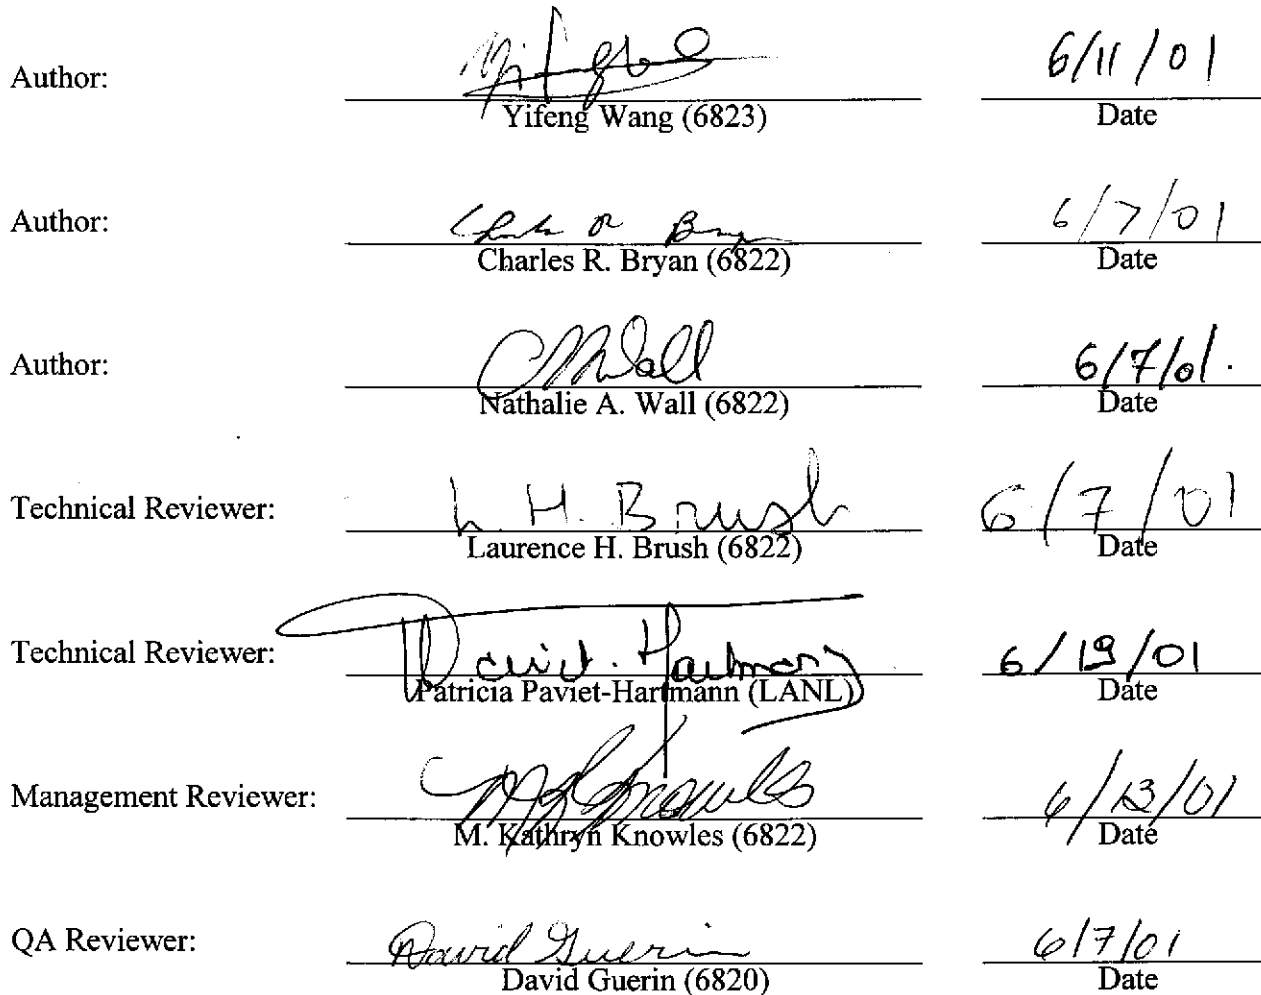 Author: 6/11/01
Yifeng Wang (6823) Date
Author: Charles R Bryan 6/7/01
Charles R. Bryan (6822) Date
Author: NWall 6/7/01.
Nathalie A. Wall (6822) Date
Technical Reviewer: L. H. Brush 6/7/01
Laurence H. Brush (6822) Date
Technical Reviewer: Paviet-Hartmann 6/19/01
Patricia Paviet-Hartmann (LANL) Date
Management Reviewer: MKKnowles 6/13/01
M. Kathryn Knowles (6822) Date
QA Reviewer: David Guerin 6/7/01
David Guerin (6820) Date